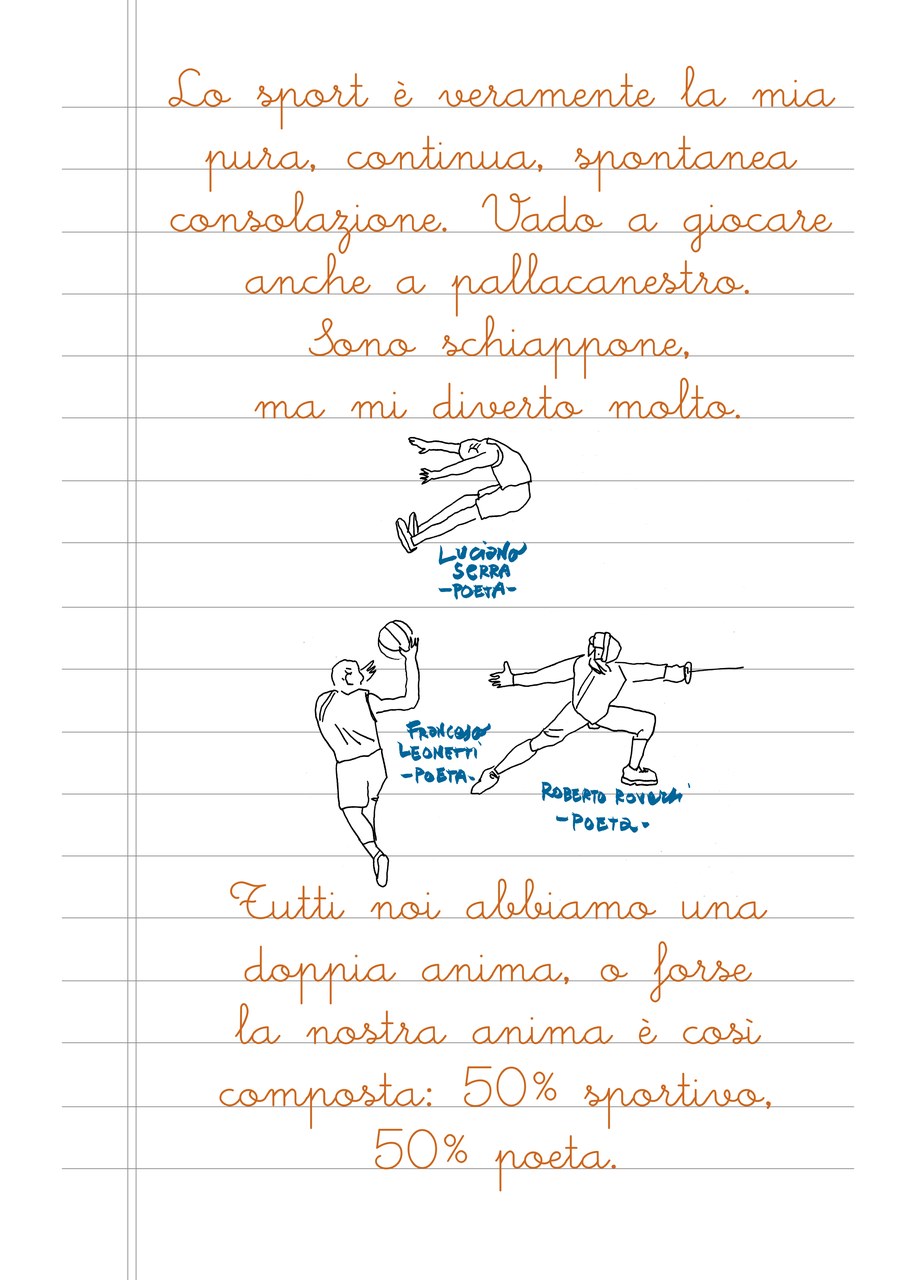 Lo sport è veramente la mia
pura, continua, spontanea
consolazione. Vado a giocare
anche a pallacanestro.
Sono schiappone,
ma mi diverto molto.
Luciano
SERRA
-POETA-
FRANCESCO
LEONETTI
-POETA-
ROBERTO ROVERSI
-POETA-
Tutti noi abbiamo una
doppia anima, o forse
la nostra anima è così
composta: 50% sportivo,
50% poeta.